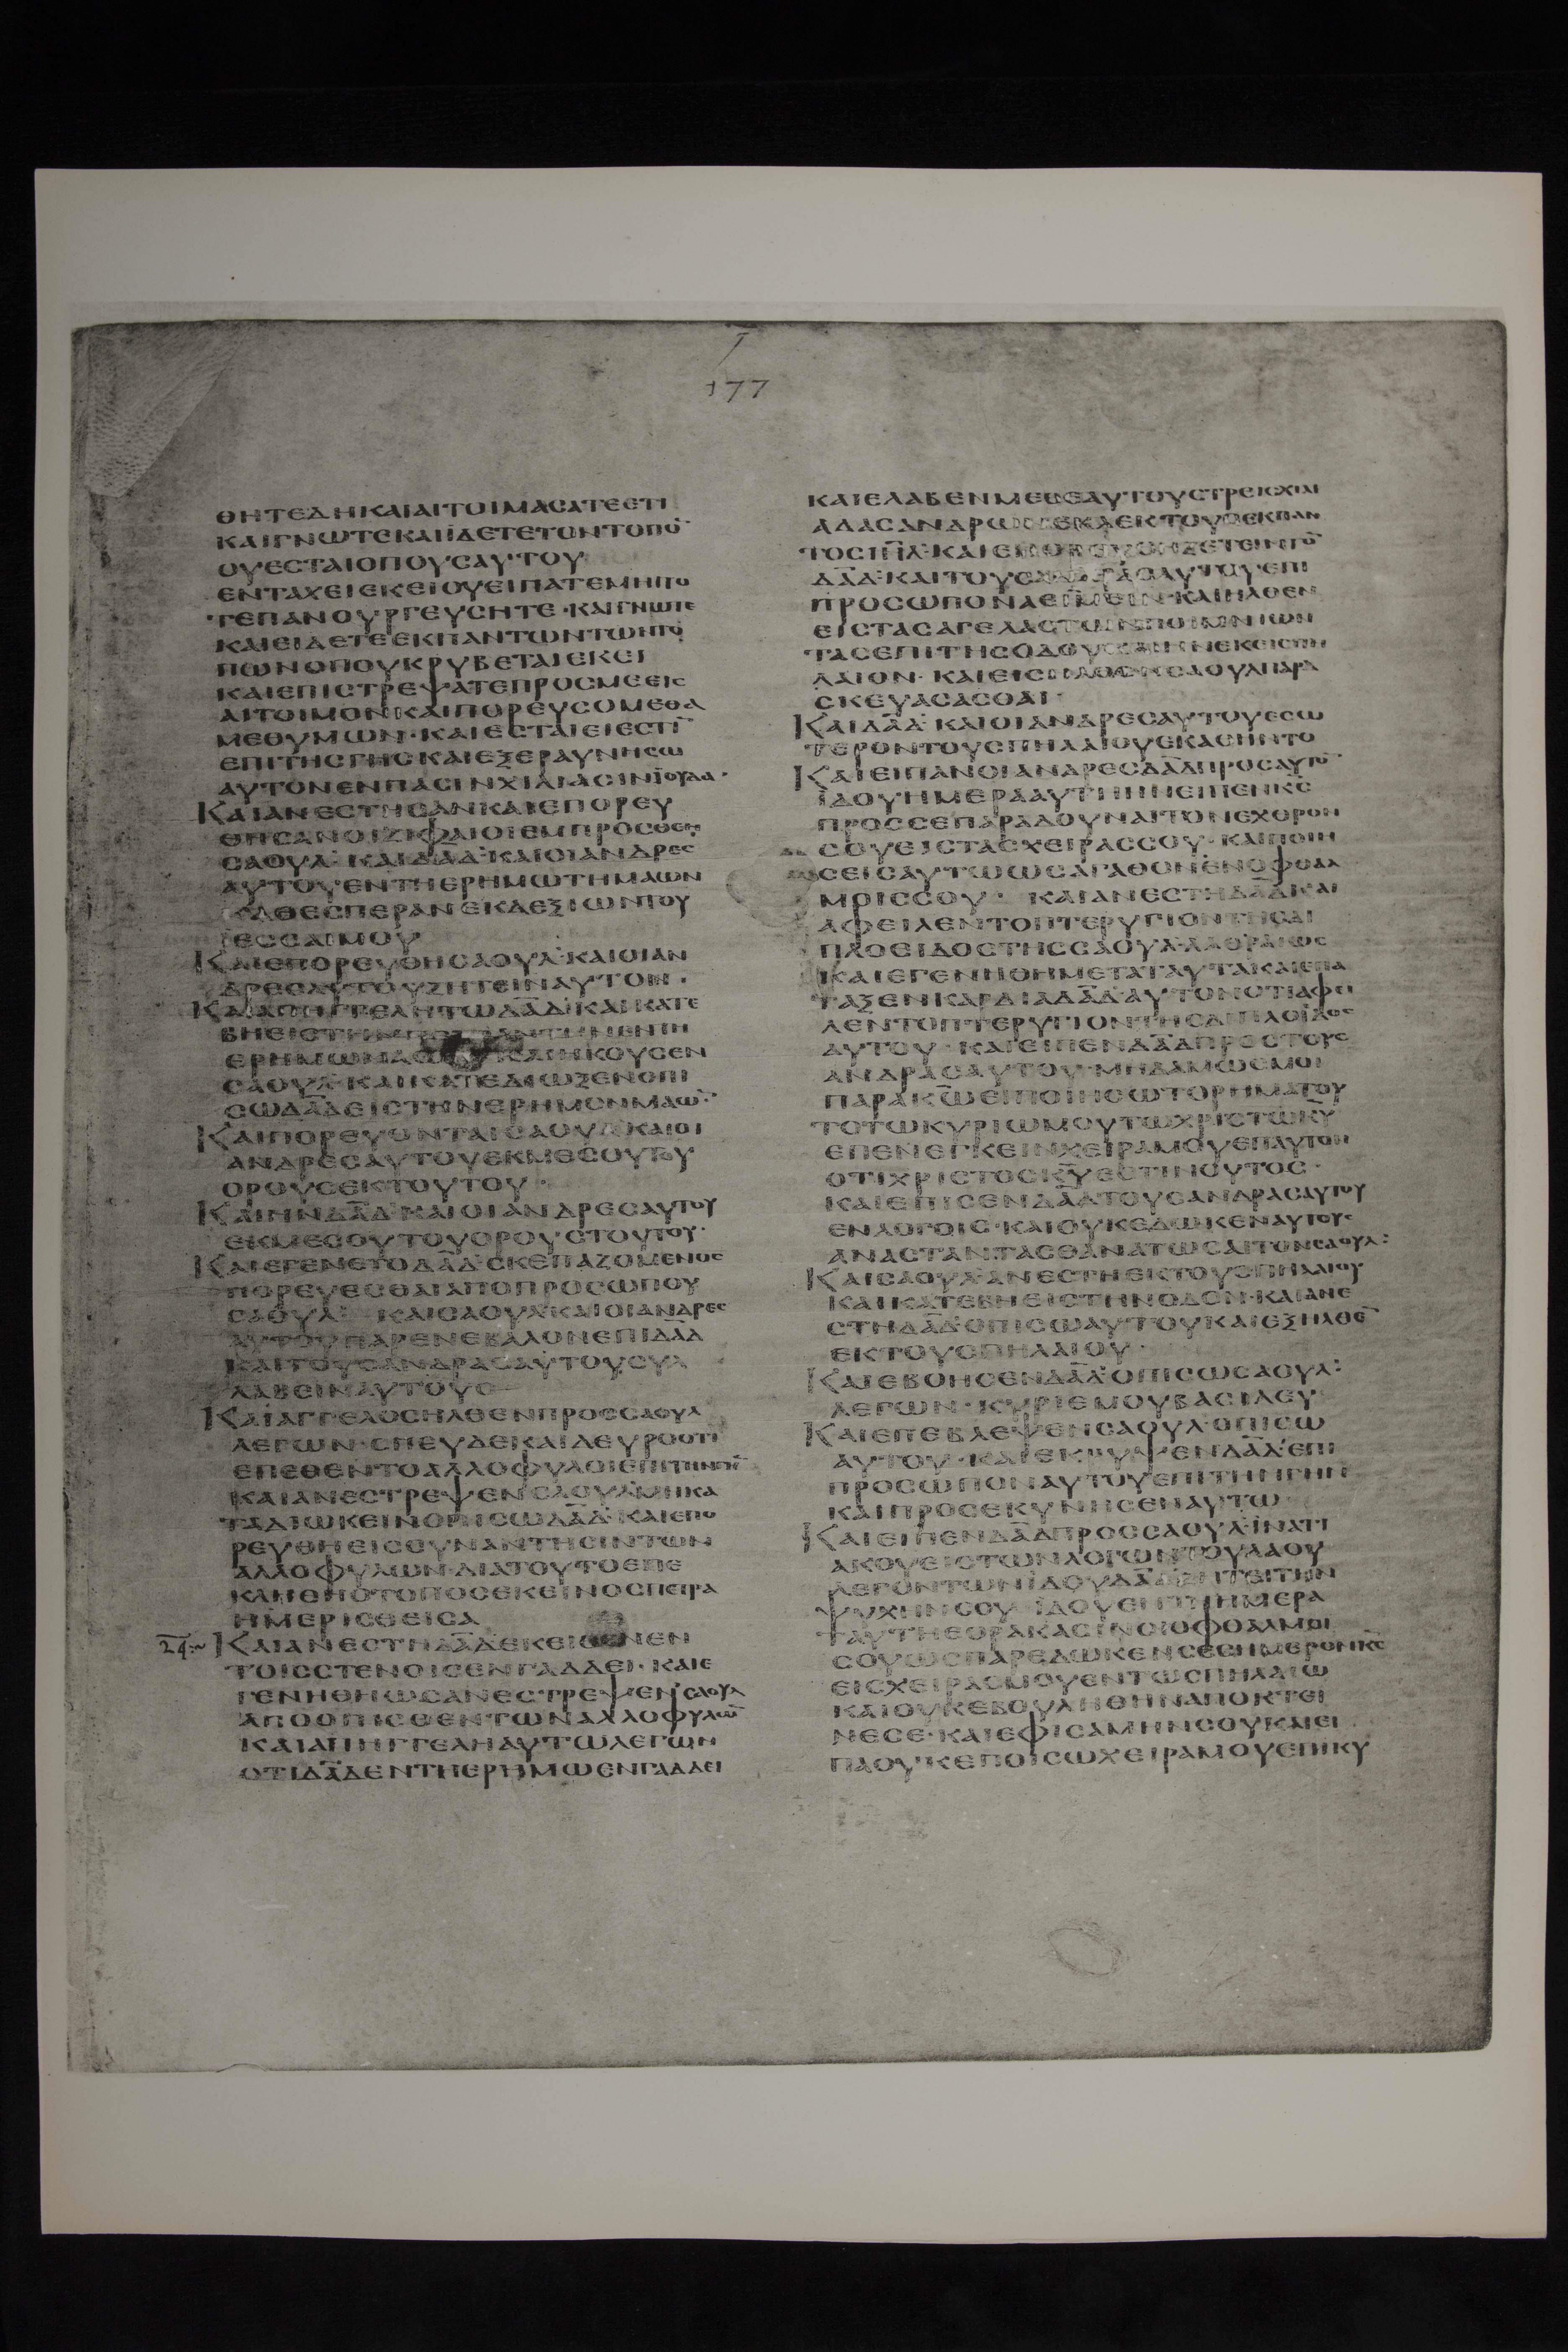 177
ΘΗΤΕΔΗΚΑΙΑΙΤΟΙΜΑCΑΤΕΕΤΙ
ΚΑΙΓΝΩΤΕΚΑΙΪΔΕΤΕΤΟΝΤΟΠΟ̅
ΟΥΕCΤΑΙΟΠΟΥCΑΥΤΟΥ
ΕΝΤΑΧΕΙΕΚΕΙΟΥΕΙΠΑΤΕΜΗΠΟ
ΤΕΠΑΝΟΥΡΓΕΥCΗΤΕ·ΚΑΙΓΝΩΤΕ
ΚΑΙΕΙΔΕΤΕΕΚΠΑΝΤΩΝΤΩΝΤΟ
ΠΩΝΟΠΟΥΚΡΥΒΕΤΑΙΕΚΕΙ
ΚΑΙΕΠΙCΤΡΕΨΑΤΕΠΡΟCΜΕΕΙC
ΑΙΤΟΙΜΟΝΚΑΙΠΟΡΕΥCΟΜΕΘΑ
ΜΕΘΥΜΩΝ·ΚΑΙΕCΤΑΙΕΙΕCΤΙ̅
ΕΠΙΤΗCΓΗCΚΑΙΕΞΕΡΑΥΝΗCΩ
ΑΥΤΟΝΕΝΠΑCΙΝΧΙΛΙΑCΙΝΪΟΥΔΑ·
ΚΑΙΑΝΕCΤΗCΑΝΚΑΙΕΠΟΡΕΥ
ΘΗCΑΝΟΙΖΙΦΑΙΟΙΕΜΠΡΟCΘΕΝ
CΑΟΥΛ·ΚΑΙΔΑ̅Δ·ΚΑΙΟΙΑΝΔΡΕC
ΑΥΤΟΥΕΝΤΗΕΡΗΜΩΤΗΜΑΩΝ
ΚΑΘΕCΠΕΡΑΝΕΚΔΕΞΙΩΝΤΟΥ
ΪΕCCΑΙΜΟΥ
ΚΑΙΕΠΟΡΕΥΘΗCΑΟΥΛ·ΚΑΙΟΙΑΝ
ΔΡΕCΑΥΤΟΥΖΗΤΕΙΝΑΥΤΟΝ·
ΚΑΙΑΠΗΓΓΕΛΗΤΩΔΑ̅Δ·ΚΑΙΚΑΤΕ
ΒΗΕΙCΤΗΝ ΕΝΤΗ
ΕΡΗΜΩΜΑΩΝ ΚΑΙΗΚΟΥCΕΝ
CΑΟΥΛ·ΚΑΙΚΑΤΕΔΙΩΞΕΝΟΠΙ
CΩΔΑ̅ΔΕΙCΤΗΝΕΡΗΜΟΝΜΑΩ̅·
ΚΑΙΠΟΡΕΥΟΝΤΑΙCΑΟΥΛ·ΚΑΙΟΙ
ΑΝΔΡΕCΑΥΤΟΥΕΚΜΕCΟΥΤΟΥ
ΟΡΟΥCΕΚΤΟΥΤΟΥ·
ΚΑΙΗΝΔΑ̅Δ·ΚΑΙΟΙΑΝΔΡΕCΑΥΤΟΥ
ΕΚΜΕCΟΥΤΟΥΟΡΟΥCΤΟΥΤΟΥ·
ΚΑΙΕΓΕΝΕΤΟΔΑ̅Δ·CΚΕΠΑΖΟΜΕΝΟC
ΠΟΡΕΥΕCΘΑΙΑΠΟΠΡΟCΩΠΟΥ
CΑΟΥΛ· ΚΑΙCΑΟΥΛ·ΚΑΙΟΙΑΝΔΡΕC
ΑΥΤΟΥΠΑΡΕΝΕΒΑΛΟΝΕΠΙΔΑ̅Δ
ΚΑΙΤΟΥCΑΝΔΡΑCΑΥΤΟΥCΥΛ
ΛΑΒΕΙΝΑΥΤΟΥC
ΚΑΙΑΓΓΕΛΟCΗΛΘΕΝΠΡΟCCΑΟΥΛ
ΛΕΓΩΝ·CΠΕΥΔΕΚΑΙΔΕΥΡΟΟΤΙ
ΕΠΕΘΕΝΤΟΑΛΛΟΦΥΛΟΙΕΠΙΤΗΝΓΗ̅
ΚΑΙΑΝΕCΤΡΕΨΕΝCΑΟΥΛ·ΜΗΚΑ
ΤΑΔΙΩΚΕΙΝΟΠΙCΩΔΑ̅Δ·ΚΑΙΕΠΟ
ΡΕΥΘΗΕΙCCΥΝΑΝΤΗCΙΝΤΩΝ
ΑΛΛΟΦΥΛΩΝ·ΔΙΑΤΟΥΤΟΕΠΕ
ΚΛΗΘΗΟΤΟΠΟCΕΚΕΙΝΟCΠΕΤΡΑ
ΗΜΕΡΙCΘΕΙCΑ
24 ΚΑΙΑΝΕCΤΗΔΑ̅ΔΕΚΕΙΘΕΝΕΝ
ΤΟΙCCΤΕΝΟΙCΕΝΓΑΔΔΕΙ·ΚΑΙΕ
ΓΕΝΗΘΗΩCΑΝΕCΤΡΕΨΕΝCΑΟΥΛ
ΑΠΟΟΠΙCΘΕΝΤΩΝΑΛΛΟΦΥΛΩ̅
ΚΑΙΑΠΗΓΓΕΛΗΑΥΤΩΛΕΓΩΝ
ΟΤΙΔΑ̅ΔΕΝΤΗΕΡΗΜΩΕΝΓΑΔΔΕΙ
ΚΑΙΕΛΑΒΕΝΜΕΘΕΑΥΤΟΥCΤΡΕΙCΧΙΛΙ
ΑΔΑCΑΝΔΡΩΝ ΕΚΠΑΝ
ΤΟCΙΗ̅Λ·ΚΑΙΕΠΟΡΕΥΘΗΖΕΤΕΙΝΤΟ̅
ΔΑ̅Δ·ΚΑΙΤΟΥCΑΝΔΡΑCΑΥΤΟΥ·ΕΠΙ
ΠΡΟCΩΠΟΝ ΚΑΙΗΛΘΕΝ
ΕΙCΤΑCΑΓΕΛΑCΤΩΝΠΟΙΜΝΙΩΝ
ΤΑCΕΠΙΤΗCΟΔΟΥΚΑΙΗΝΕΚΕΙCΠΗ
ΛΑΙΟΝ·ΚΑΙΕΙCΗΛΘΕΝCΑΟΥΛΠΑΡΑ
CΚΕΥΑCΑCΘΑΙ·
ΚΑΙΔΑ̅Δ·ΚΑΙΟΙΑΝΔΡΕCΑΥΤΟΥΕCΩ
ΤΕΡΟΝΤΟΥCΠΗΛΑΙΟΥΕΚΑΘΗΝΤΟ
ΚΑΙΕΙΠΑΝΟΙΑΝΔΡΕCΔΑ̅ΔΠΡΟCΑΥΤΟ̅
ΪΔΟΥΗΜΕΡΑΑΥΤΗΗΝΕΙΠΕΝΚ̅C
ΠΡΟCCΕΠΑΡΑΔΟΥΝΑΙΤΟΝΕΧΘΡΟΝ
CΟΥΕΙCΤΑCΧΕΙΡΑCCΟΥ·ΚΑΙΠΟΙΗ
CΕΙCΑΥΤΩΩCΑΓΑΘΟΝΕΝΟΦΘΑΛ
ΜΟΙCCΟΥ· ΚΑΙΑΝΕCΤΗΔΑ̅ΔΚΑΙ
ΑΦΕΙΛΕΝΤΟΠΤΕΡΥΓΙΟΝΤΗCΔΙ
ΠΛΟΕΙΔΟCΤΗCCΑΟΥΛ·ΛΑΘΡΑΙΩC
ΚΑΙΕΓΕΝΗΘΗΜΕΤΑΤΑΥΤΑΚΑΙΕΠΑ
ΤΑΞΕΝΚΑΡΔΙΑΔΑ̅Δ·ΑΥΤΟΝΟΤΙΑΦΕΙ
ΛΕΝΤΟΠΤΕΡΥΓΙΟΝΤΗCΔΙΠΛΟΪΔΟC
ΑΥΤΟΥ·ΚΑΙΕΙΠΕΝΔΑ̅ΔΠΡΟCΤΟΥC
ΑΝΔΡΑCΑΥΤΟΥ·ΜΗΔΑΜΩCΜΟΙ
ΠΑΡΑΚ̅Ω̅ΕΙΠΟΙΗCΩΤΟΡΗΜΑΤΟΥ
ΤΟΤΩΚΥΡΙΩΜΟΥΤΩΧΡΙCΤΩΚ̅Υ̅
ΕΠΕΝΕΓΚΕΙΝΧΕΙΡΑΜΟΥΕΠΑΥΤΟΝ
ΟΤΙΧΡΙCΤΟCΚ̅Υ̅ΕCΤΙΝΟΥΤΟC·
ΚΑΙΕΠΙCΕΝΔΑ̅ΔΤΟΥCΑΝΔΡΑCΑΥΤΟΥ
ΕΝΛΟΓΟΙC·ΚΑΙΟΥΚΕΔΩΚΕΝΑΥΤΟΥC
ΑΝΑCΤΑΝΤΑCΘΑΝΑΤΩCΑΙΤΟΝCΑΟΥΛ:
ΚΑΙCΑΟΥΛ·ΑΝΕCΤΗΕΚΤΟΥCΠΗΛΑΙΟΥ
ΚΑΙΚΑΤΕΒΗΕΙCΤΗΝΟΔΟΝ·ΚΑΙΑΝΕ
CΤΗΔΑ̅Δ·ΟΠΙCΩΑΥΤΟΥΚΑΙΕΞΗΛΘΕ̅
ΕΚΤΟΥCΠΗΛΑΙΟΥ·
ΚΑΙΕΒΟΗCΕΝΔΑ̅Δ·ΟΠΙCΩCΑΟΥΛ:
ΛΕΓΩΝ·ΚΥΡΙΕΜΟΥΒΑCΙΛΕΥ
ΚΑΙΕΠΕΒΛΕΨΕΝCΑΟΥΛ·ΟΠΙCΩ
ΑΥΤΟΥ·ΚΑΙΕΚΥΨΕΝΔΑ̅Δ·ΕΠΙ
ΠΡΟCΩΠΟΝΑΥΤΟΥΕΠΙΤΗΝΓΗΝ
ΚΑΙΠΡΟCΕΚΥΝΗCΕΝΑΥΤΩ
ΚΑΙΕΙΠΕΝΔΑ̅ΔΠΡΟCCΑΟΥΛ·ΪΝΑΤΙ
ΑΚΟΥΕΙCΤΩΝΛΟΓΩΝΤΟΥΛΑΟΥ
ΛΕΓΟΝΤΩΝΪΔΟΥΔΑ̅ΔΖΗΤΕΙΤΗΝ
ΨΥΧΗΝCΟΥ ΪΔΟΥΕΝΤΗΗΜΕΡΑ
ΤΑΥΤΗΕΟΡΑΚΑCΙΝΟΙΟΦΘΑΛΜΟΙ
CΟΥΩCΠΑΡΕΔΩΚΕΝCΕCΗΜΕΡΟΝΚ̅C
ΕΙCΧΕΙΡΑCΜΟΥΕΝΤΩCΠΗΛΑΙΩ
ΚΑΙΟΥΚΕΒΟΥΛΗΘΗΝΑΠΟΚΤΕΙ
ΝΕCΕ·ΚΑΙΕΦΙCΑΜΗΝCΟΥΚΑΙΕΙ
ΠΑΟΥΚΕΠΟΙCΩΧΕΙΡΑΜΟΥΕΠΙΚΥ